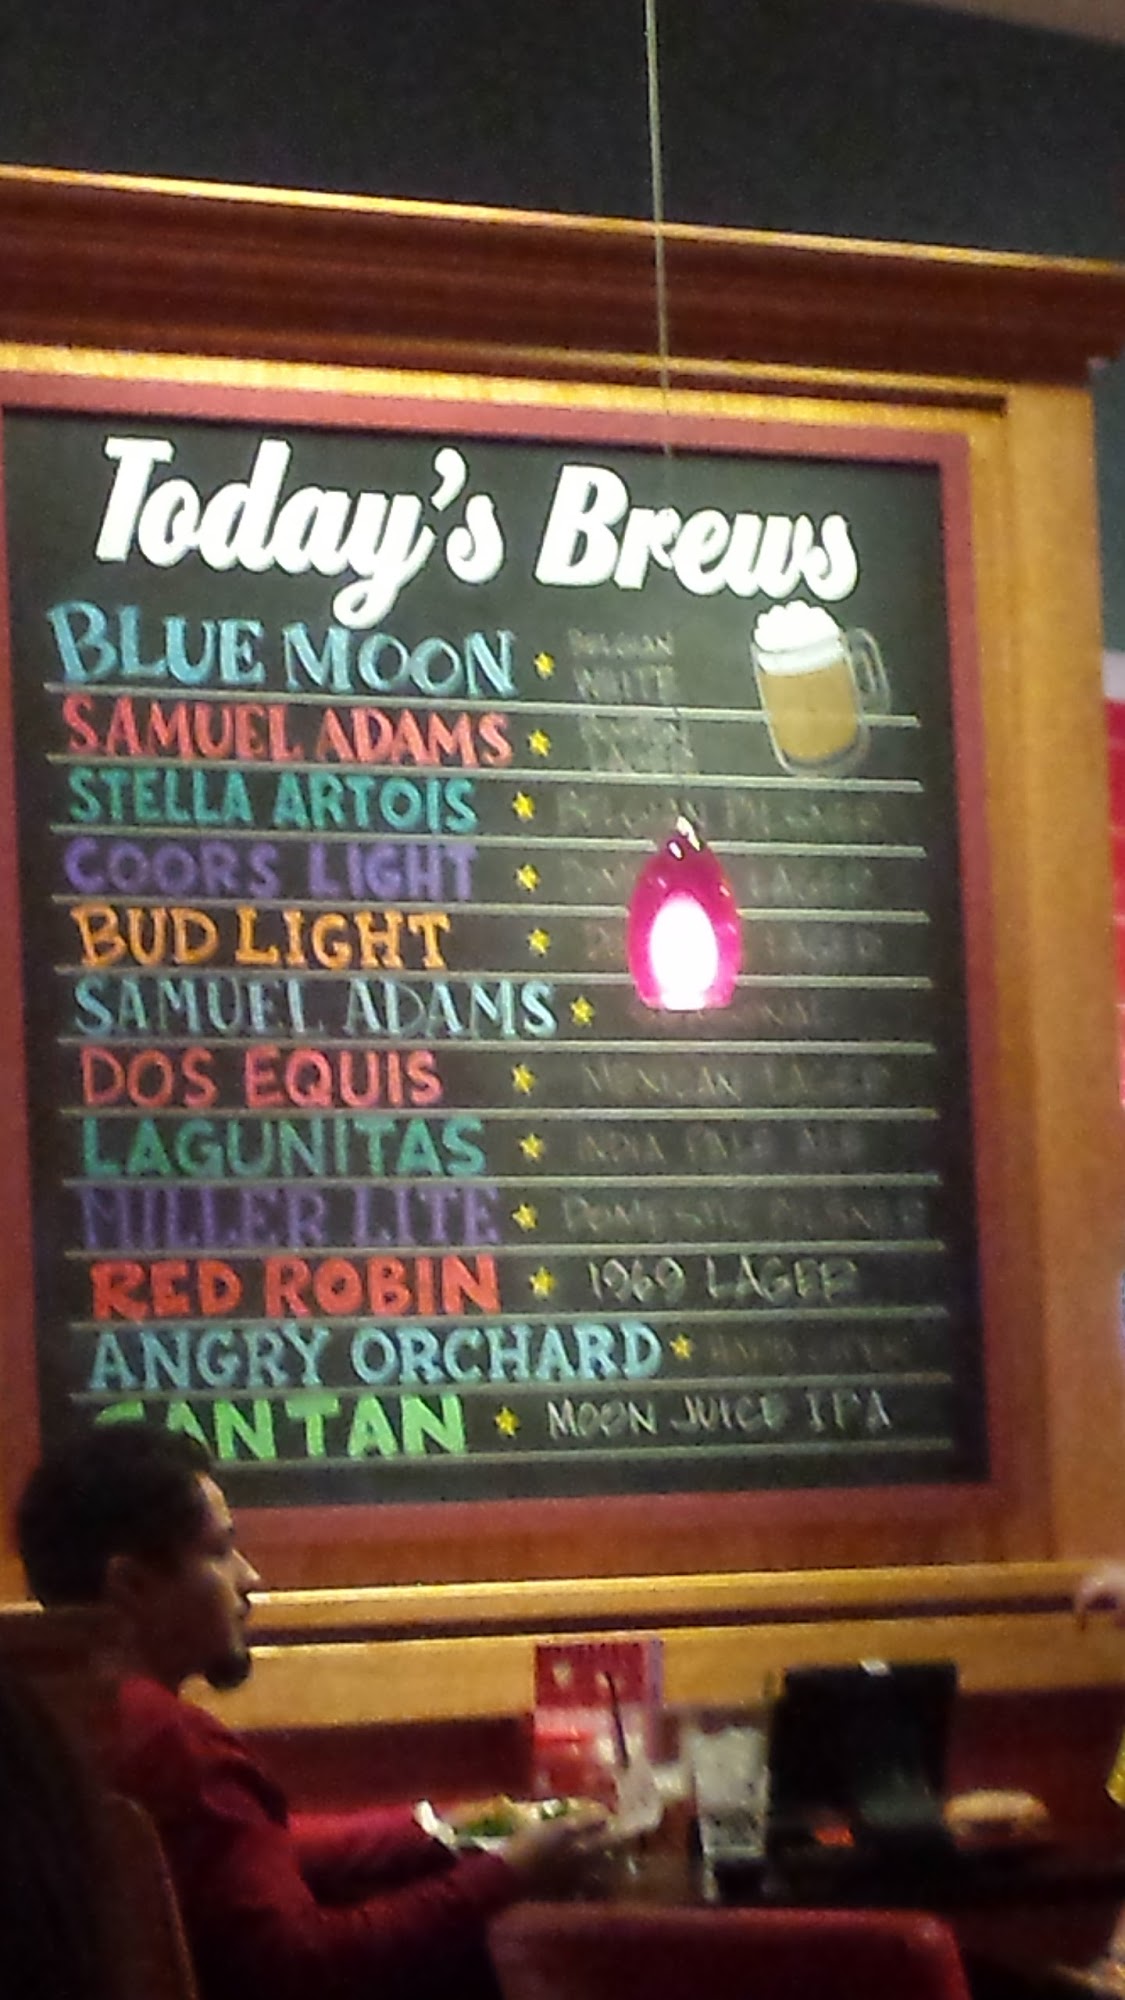 Today's Brews
BLUE MOON BELGIAN WHITE
SAMUEL ADAMS LAGER
STELLA ARTOIS BELGIAN PILSNER
COORS LIGHT LAGER
BUD LIGHT LAGER
SAMUEL ADAMS
DOS EQUIS MEXICAN LAGER
LAGUNITAS INDIA PALE ALE
MILLER LITE DOMESTIC PILSNER
RED ROBIN 1969 LAGER
ANGRY ORCHARD HARD CIDER
ANTAN MOON JUICE IPA